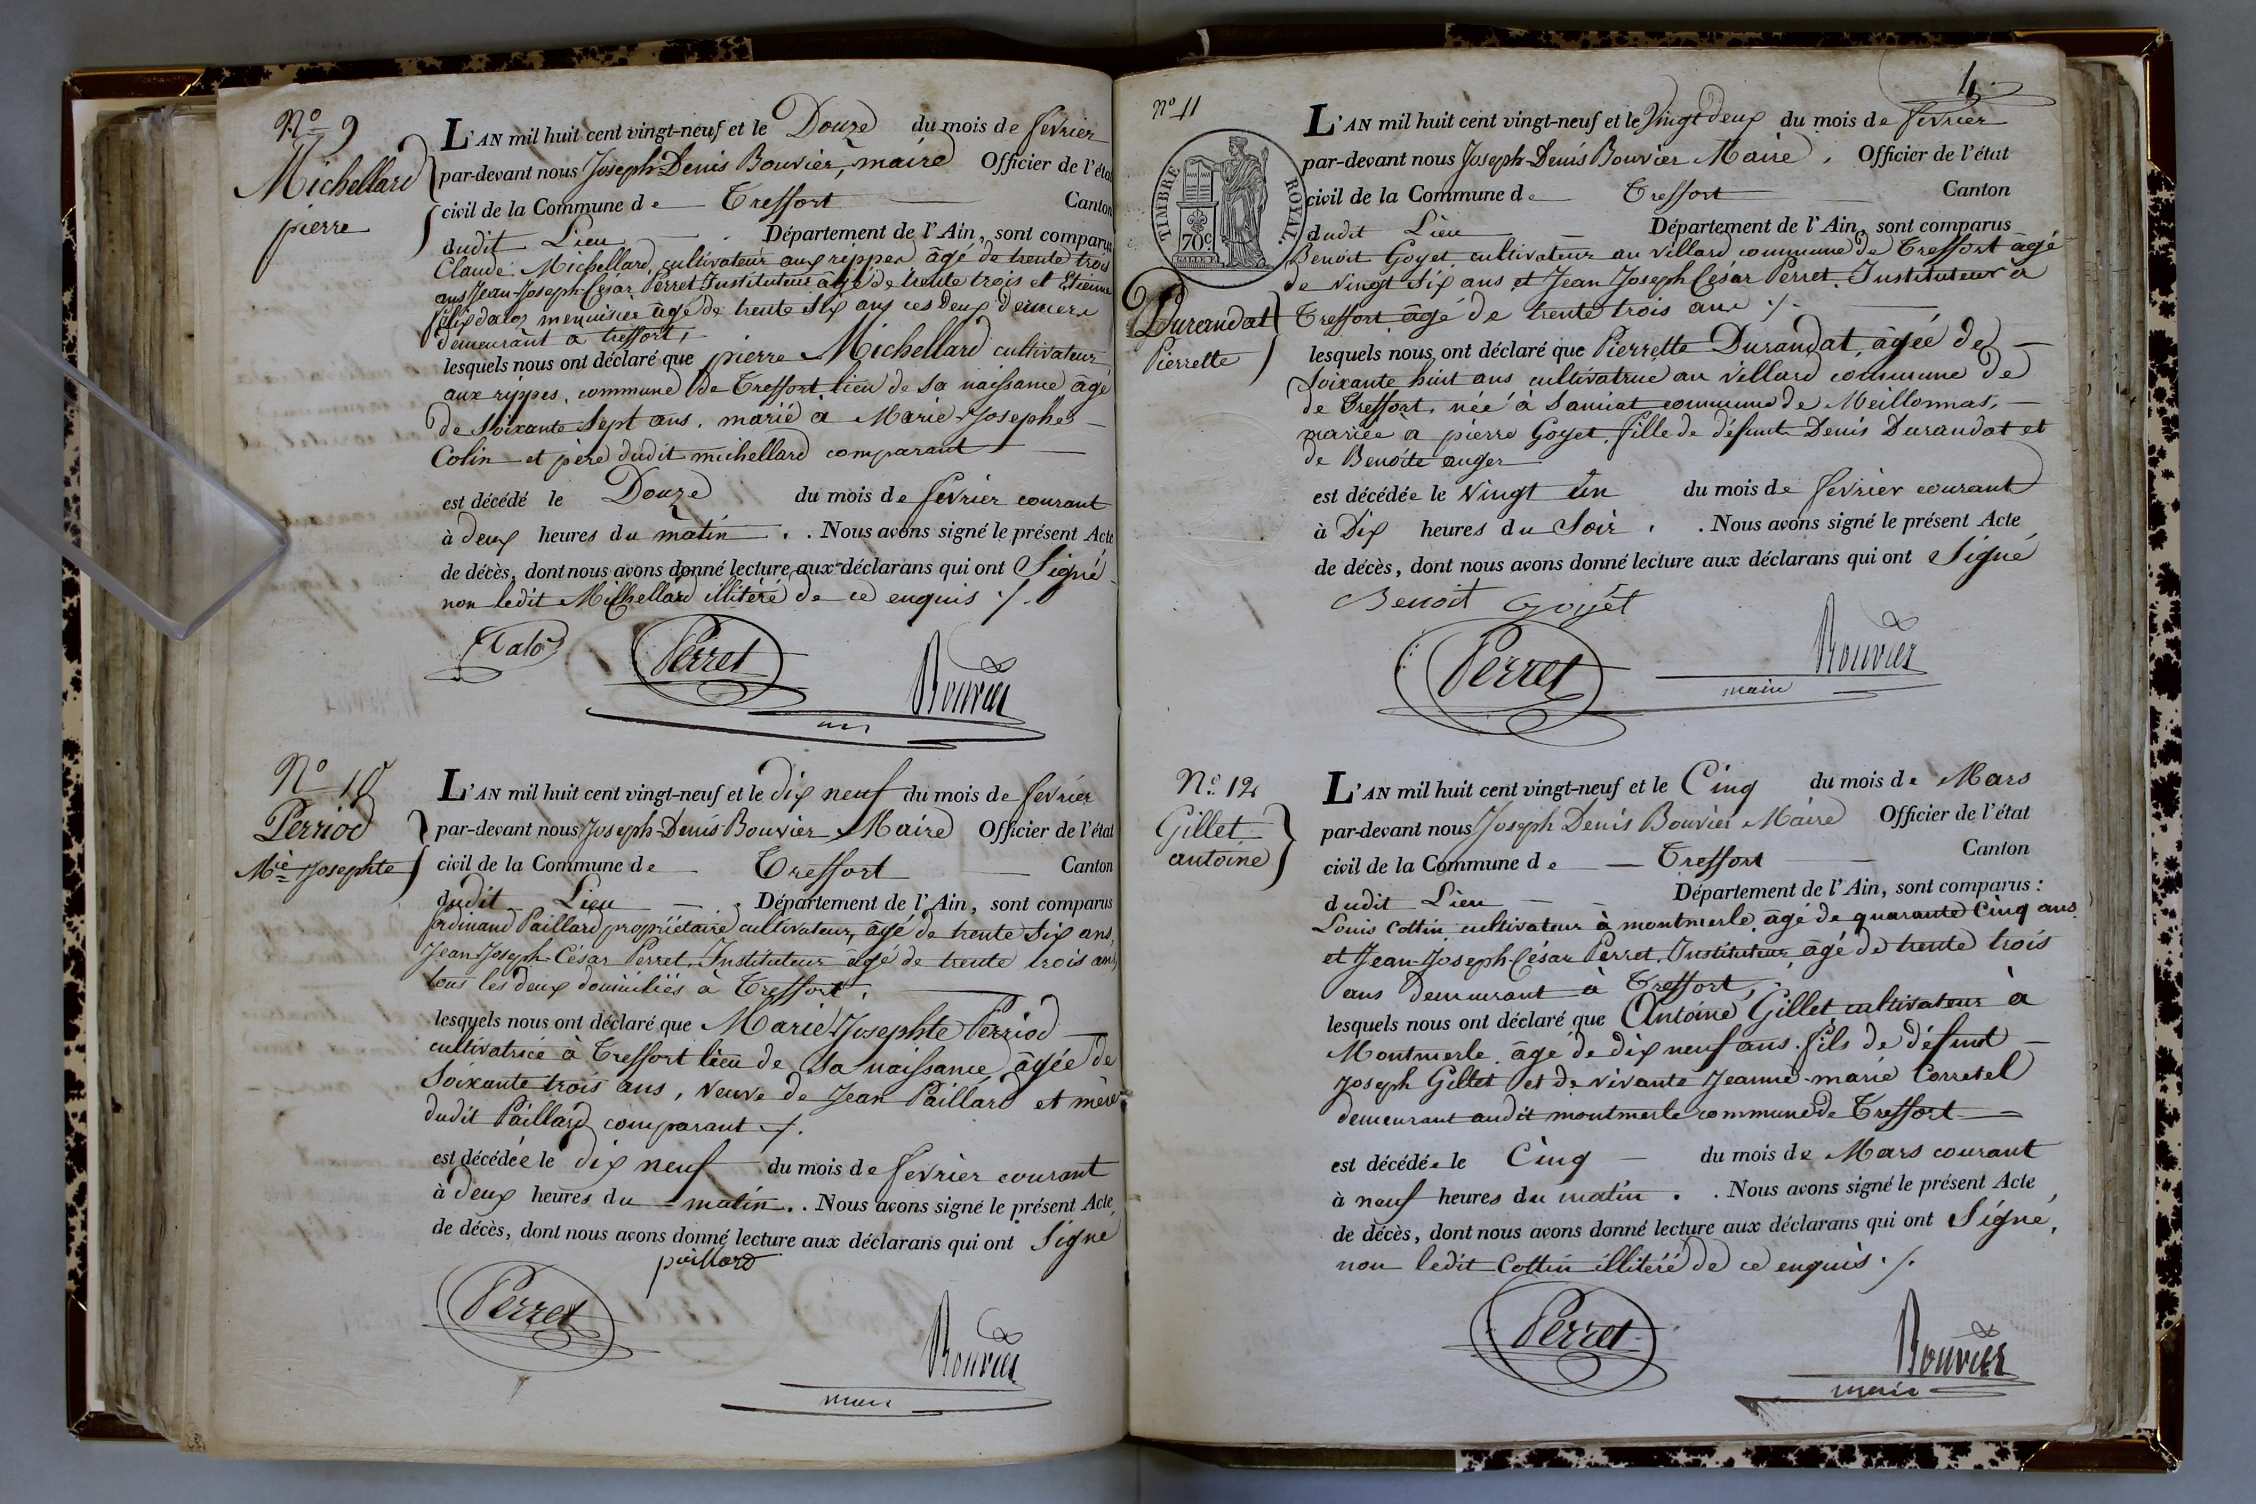 Nº 9
Michellard
pierre
L'AN mil huit cent vingt-neuf et le Douze du mois de fevrier
par-devant nous Joseph-Denis Bouvier, maire Officier de l'état
civil de la Commune de Treffort Canton
dudit Lieu Département de l'Ain, sont comparus
Claude Michellard, cultivateur aux rippes âgé de trente trois
ans Jean-Joseph-César Perret Instituteur âgé de trente trois et Etienne
felix daloz menuisier âgé de trente six ans ces deux derniers
demeurant a treffort,
lesquels nous ont déclaré que pierre Michellard cultivateur
aux rippes, commune de Treffort lieu de sa naissance âgé
de soixante sept ans, marié a Marie-Josephe
Colin et père dudit michellard comparant
est décédé le Douze du mois de fevrier courant
à deux heures du matin . . Nous avons signé le présent Acte
de décès, dont nous avons donné lecture aux déclarans qui ont Signé
non ledit Michellard illitéré de ce enquis ./.
Perret
Bouvier
Nº 10
Perriod
Mie Josephte
L'AN mil huit cent vingt-neuf et le dix neuf du mois de fevrier
par-devant nous Joseph-Denis Bouvier Maire Officier de l'état
civil de la Commune de Treffort Canton
dudit Lieu Département de l'Ain, sont comparus
ferdinand Paillard propriétaire cultivateur, âgé de trente six ans,
Jean-Joseph-César Perret, Instituteur âgé de trente trois ans,
tous les deux domiciliés à Treffort,
lesquels nous ont déclaré que Marie Josephte Perriod
cultivatrice à Treffort lieu de sa naissance âgée de
soixante trois ans, veuve de Jean Paillard et mère
dudit Paillard comparant ./.
est décédée le dix neuf du mois de fevrier courant
à deux heures du matin . . Nous avons signé le présent Acte
de décès, dont nous avons donné lecture aux déclarans qui ont Signé
paillard
Perret
Bouvier
maire
4
Nº 11
TIMBRE ROYAL.
70c
Durandat
Pierrette
L'AN mil huit cent vingt-neuf et le Vingt deux du mois de fevrier
par-devant nous Joseph-Denis Bouvier Maire, Officier de l'état
civil de la Commune de Treffort Canton
dudit Lieu Département de l'Ain, sont comparus
Benoit Goyet cultivateur au villard commune de Treffort âgé
de vingt six ans et Jean Joseph César Perret Instituteur à
Treffort âgé de trente trois ans ./.
lesquels nous ont déclaré que Pierrette Durandat, âgée de
soixante huit ans cultivatrice au villard commune de
de Treffort, née à Sanciat commune de Meillonnas,
mariée a pierre Goyet, fille de défunts Denis Durandat et
de Benoite auger
est décédée le vingt un du mois de fevrier courant
à Dix heures du Soir . . Nous avons signé le présent Acte
de décès, dont nous avons donné lecture aux déclarans qui ont Signé
Benoit Goyet
Perret
Bouvier
maire
Nº 12
Gillet
antoine
L'AN mil huit cent vingt-neuf et le Cinq du mois de Mars
par-devant nous Joseph Denis Bouvier Maire Officier de l'état
civil de la Commune de Treffort Canton
dudit Lieu Département de l'Ain, sont comparus :
Louis Cottin cultivateur à montmerle âgé de quarante Cinq ans
et Jean-Joseph-César Perret, Instituteur âgé de trente trois
ans demeurant à Treffort,
lesquels nous ont déclaré que Antoine Gillet cultivateur à
Montmerle âgé de dix neuf ans, fils de défunt
Joseph Gillet et de vivante Jeanne-marie Corretel
demeurant audit montmerle commune de Treffort
est décédé le Cinq du mois de Mars courant
à neuf heures du matin . . Nous avons signé le présent Acte
de décès, dont nous avons donné lecture aux déclarans qui ont Signé,
non ledit Cottin illitéré de ce enquis ./.
Perret
Bouvier
maire